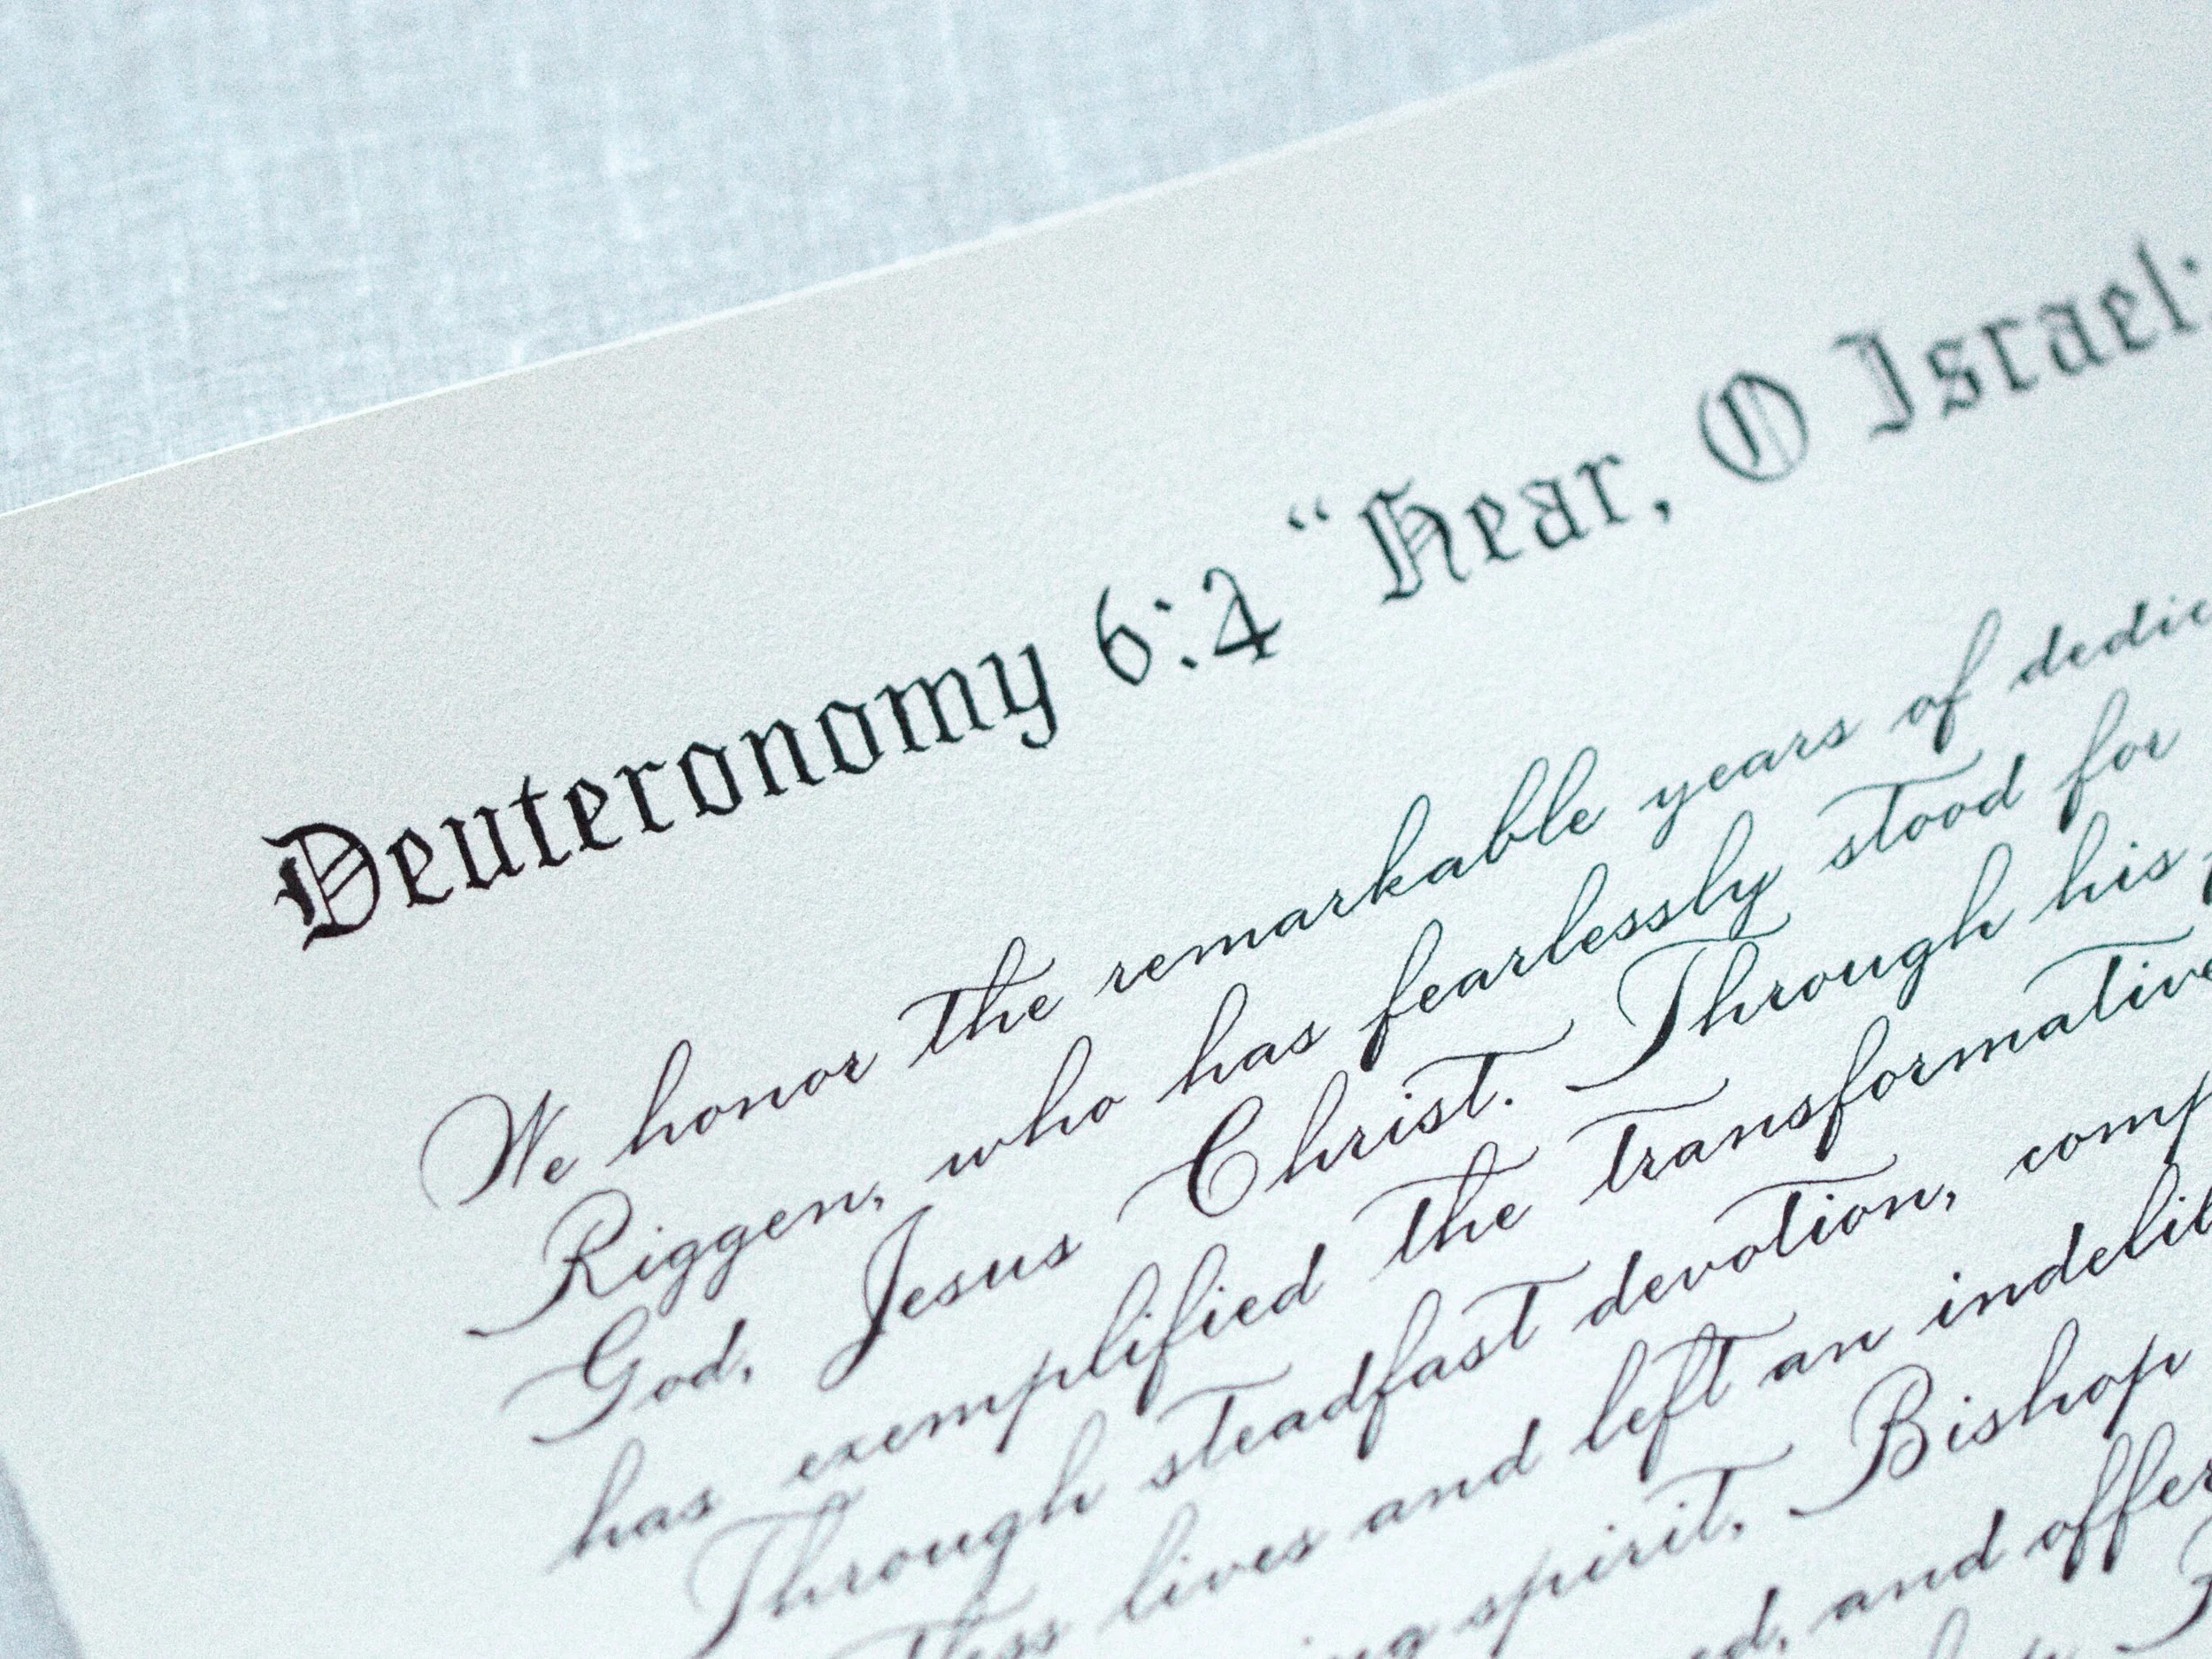 Deuteronomy 6:4 “Hear, O Israel:
We honor the remarkable years of
Riggen, who has fearlessly stood for
God, Jesus Christ. Through his
has exemplified the transformative
Through steadfast devotion,
lives and left an
spirit. Bishop
and